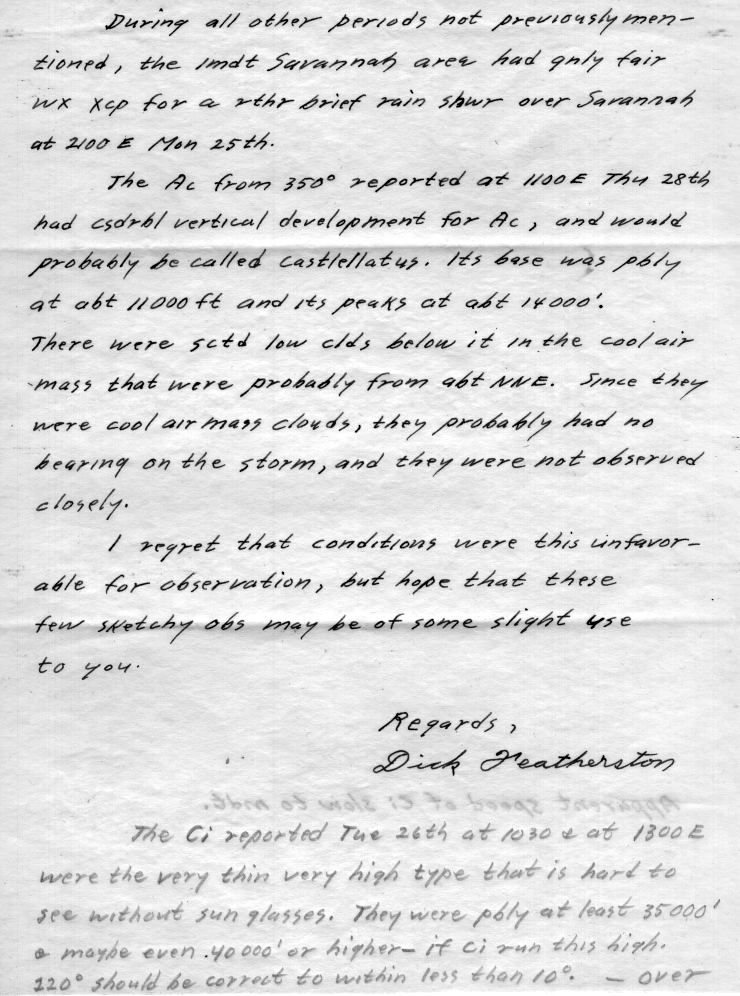 During all other periods not previously men-
tioned, the imdt Savannah area had only fair
wx xcp for a rthr brief rain shwr over Savannah
at 2100 E Mon 25th.
The Ac from 350° reported at 1100 E Thu 28th
had csdrbl vertical development for Ac, and would
probably be called castlellatus. Its base was pbly
at abt 11000 ft and its peaks at abt 14000'.
There were sctd low clds below it in the cool air
mass that were probably from abt NNE. Since they
were cool air mass clouds, they probably had no
bearing on the storm, and they were not observed
closely.
I regret that conditions were this unfavor-
able for observation, but hope that these
few sketchy obs may be of some slight use
to you.
Regards,
Dick Featherston
Apparent speed of Ci slow to mdt.
The Ci reported Tue 26th at 1030 & at 1300 E
were the very thin very high type that is hard to
see without sun glasses. They were pbly at least 35000'
& maybe even 40000' or higher— if Ci run this high.
120° should be correct to within less than 10°. — over